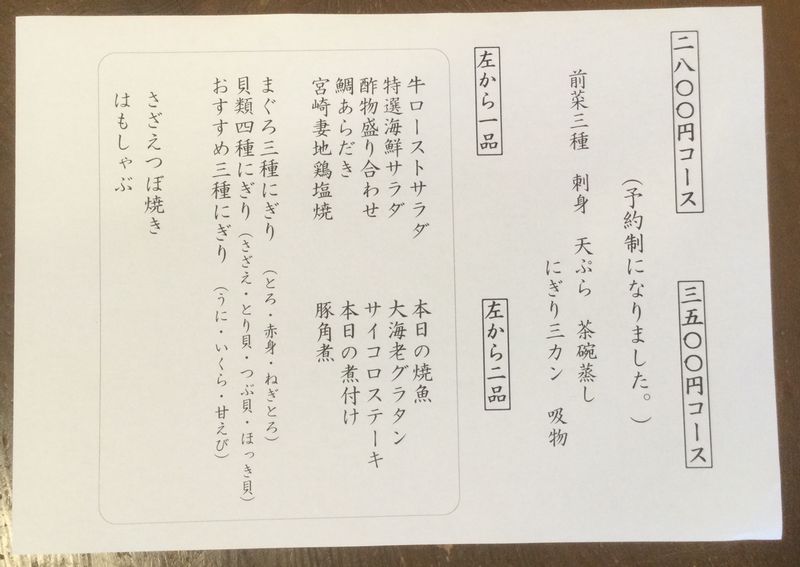 二八〇〇円コース　三五〇〇円コース
（予約制になりました。）
前菜三種　刺身　天ぷら　茶碗蒸し
にぎり三カン　吸物
左から一品　左から二品
牛ローストサラダ　本日の焼魚
特選海鮮サラダ　大海老グラタン
酢物盛り合わせ　サイコロステーキ
鯛あらだき　本日の煮付け
宮崎妻地鶏塩焼　豚角煮
まぐろ三種にぎり（とろ・赤身・ねぎとろ）
貝類四種にぎり（さざえ・とり貝・つぶ貝・ほっき貝）
おすすめ三種にぎり（うに・いくら・甘えび）
さざえつぼ焼き
はもしゃぶ